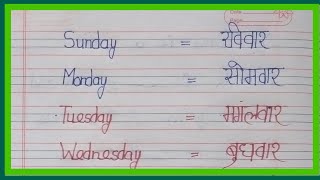 Sunday = रविवार
Monday = सोमवार
Tuesday = मगंलवार
Wednesday = बुधवार